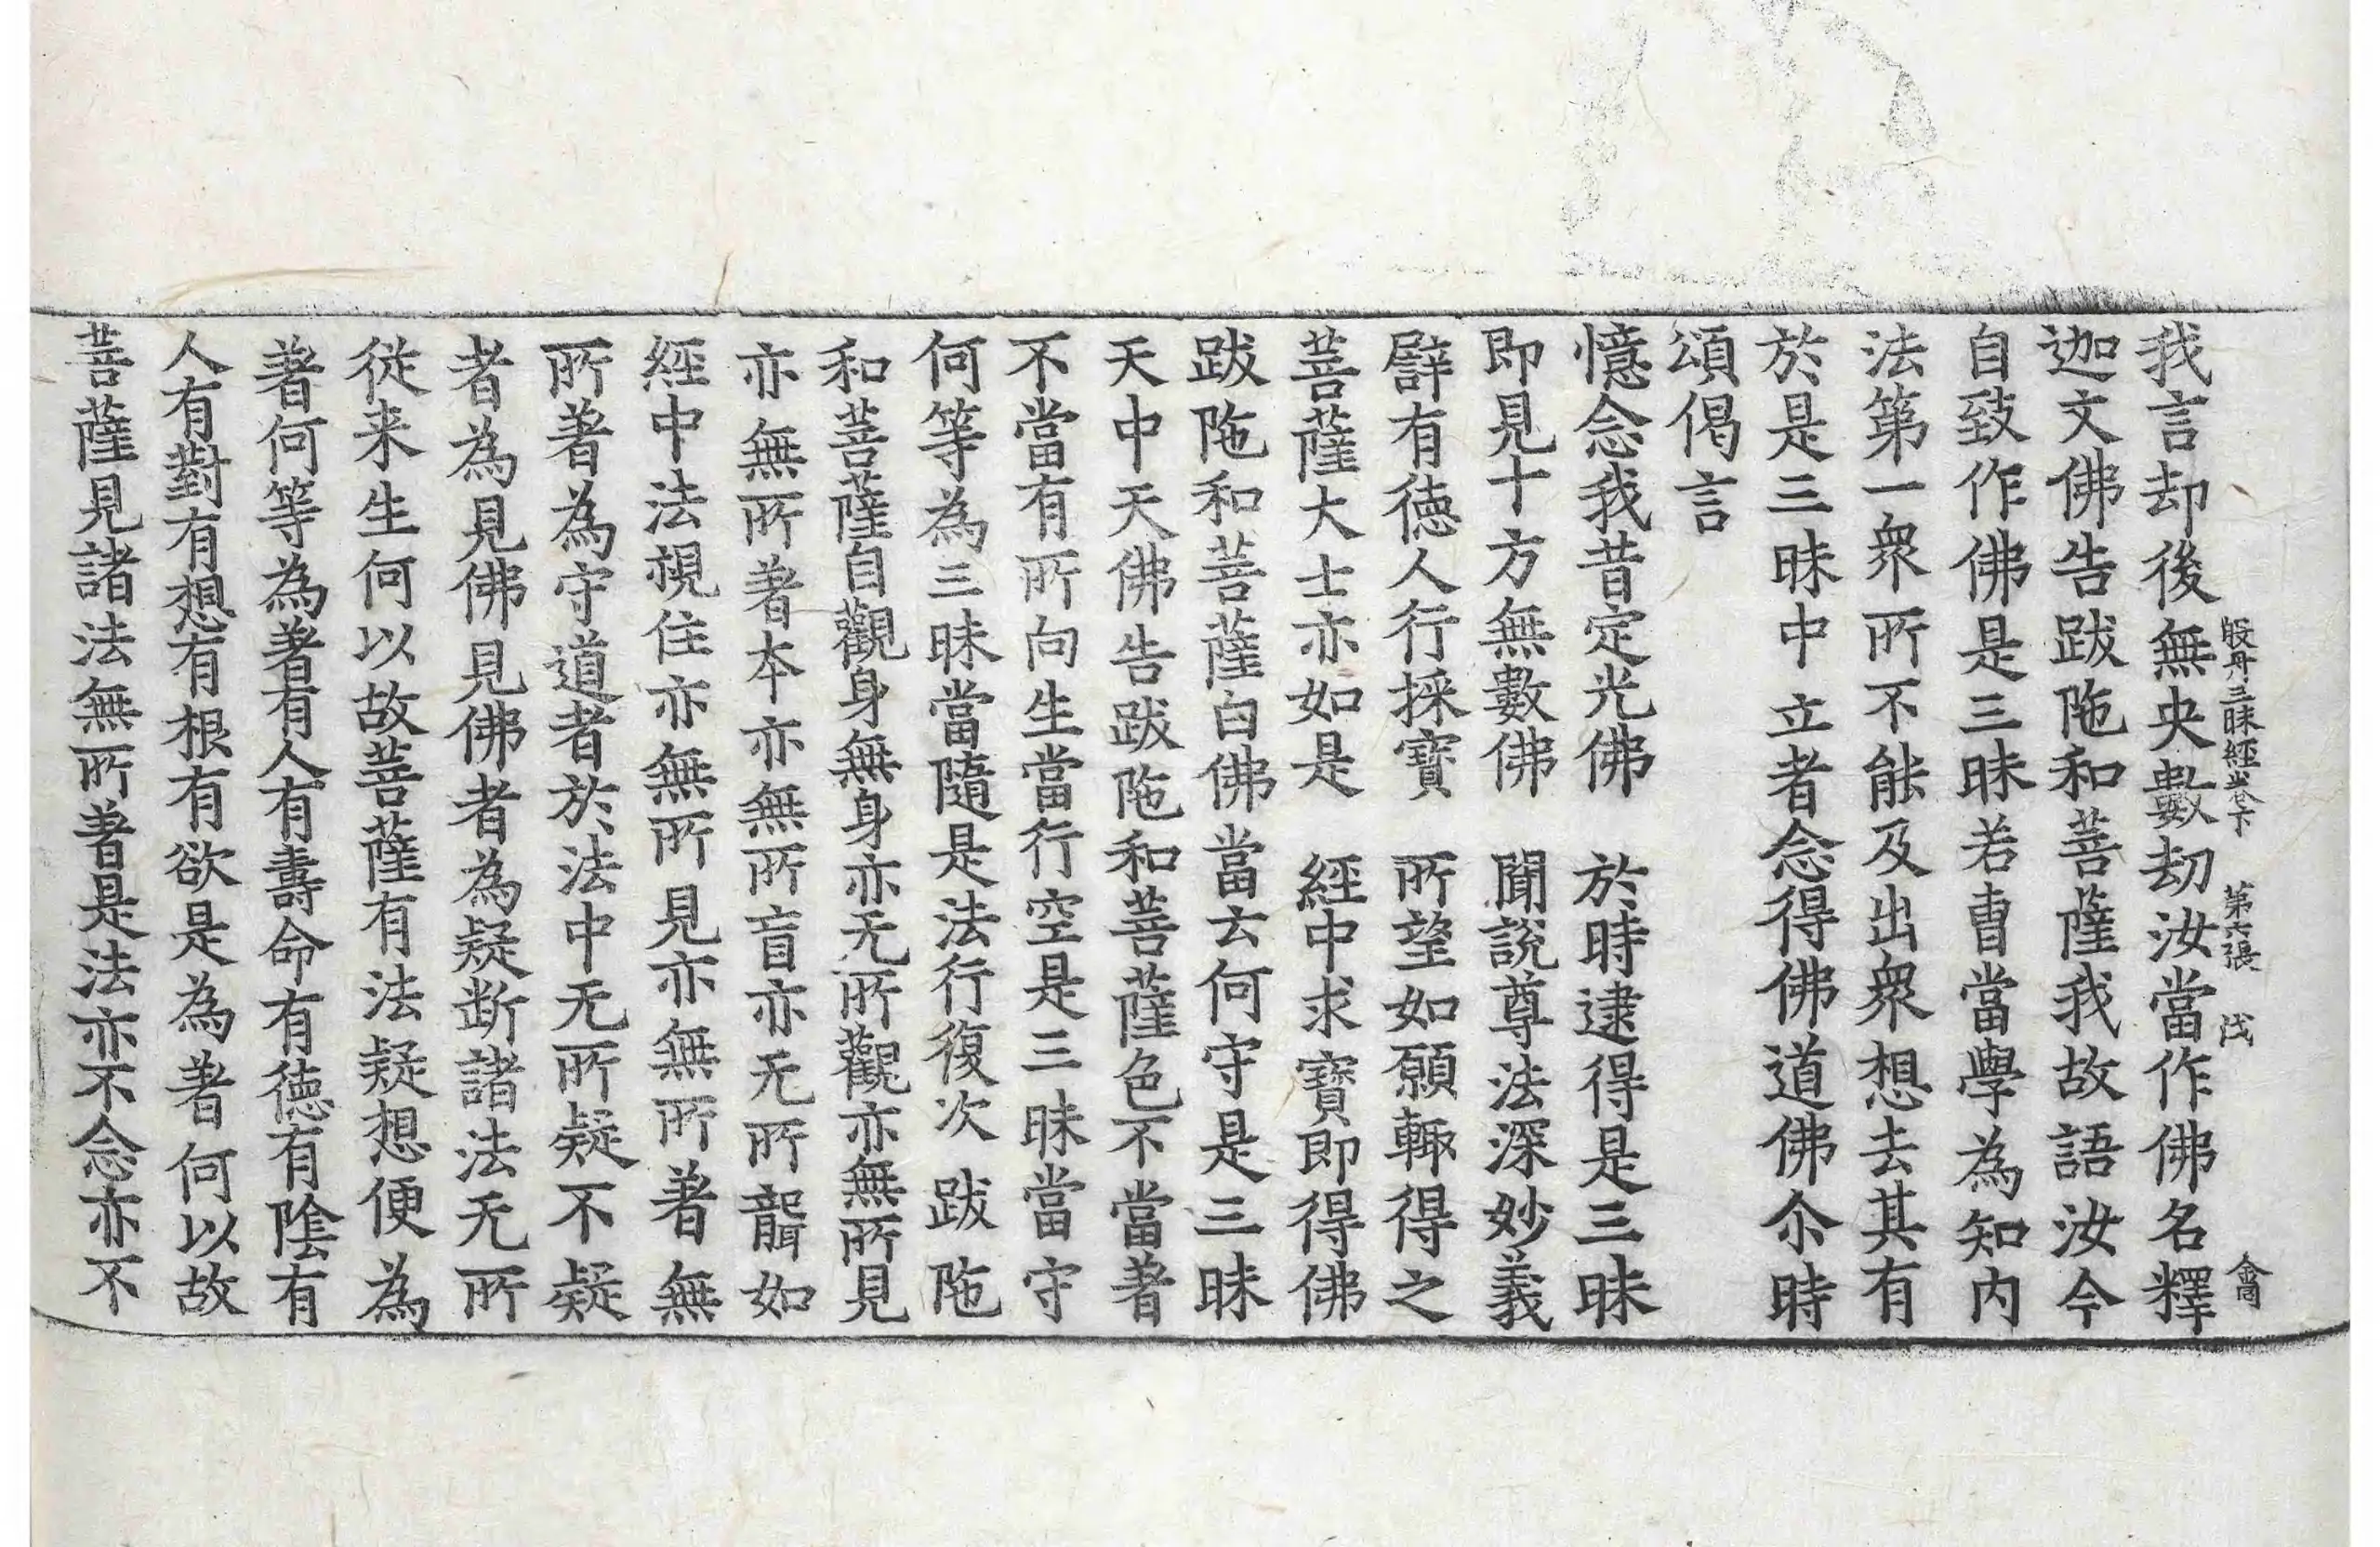 般舟三昧經卷下　第六張　伐　會
我言却後無央數劫汝當作佛名釋
迦文佛告跋陁和菩薩我故語汝今
自致作佛是三昧若曺當學為知内
法第一衆所不能及出衆想去其有
於是三昧中立者念得佛道佛尒時
頌偈言
憶念我昔定光佛　於時逮得是三昧
即見十方無數佛　聞說尊法深妙義
譬有德人行採寶　所望如願輙得之
菩薩大士亦如是　經中求寶即得佛
跋陁和菩薩白佛當云何守是三昧
天中天佛告跋陁和菩薩色不當著
不當有所向生當行空是三昧當守
何等為三昧當隨是法行復次跋陁
和菩薩自觀身無身亦无所觀亦無所見
亦無所著本亦無所盲亦无所聾如
經中法視住亦無所見亦無所著無
所著為守道者於法中无所疑不疑
者為見佛見佛者為疑断諸法无所
從来生何以故菩薩有法疑想便為
著何等為著有人有壽命有德有陰有
人有對有想有根有欲是為著何以故
菩薩見諸法無所著是法亦不念亦不